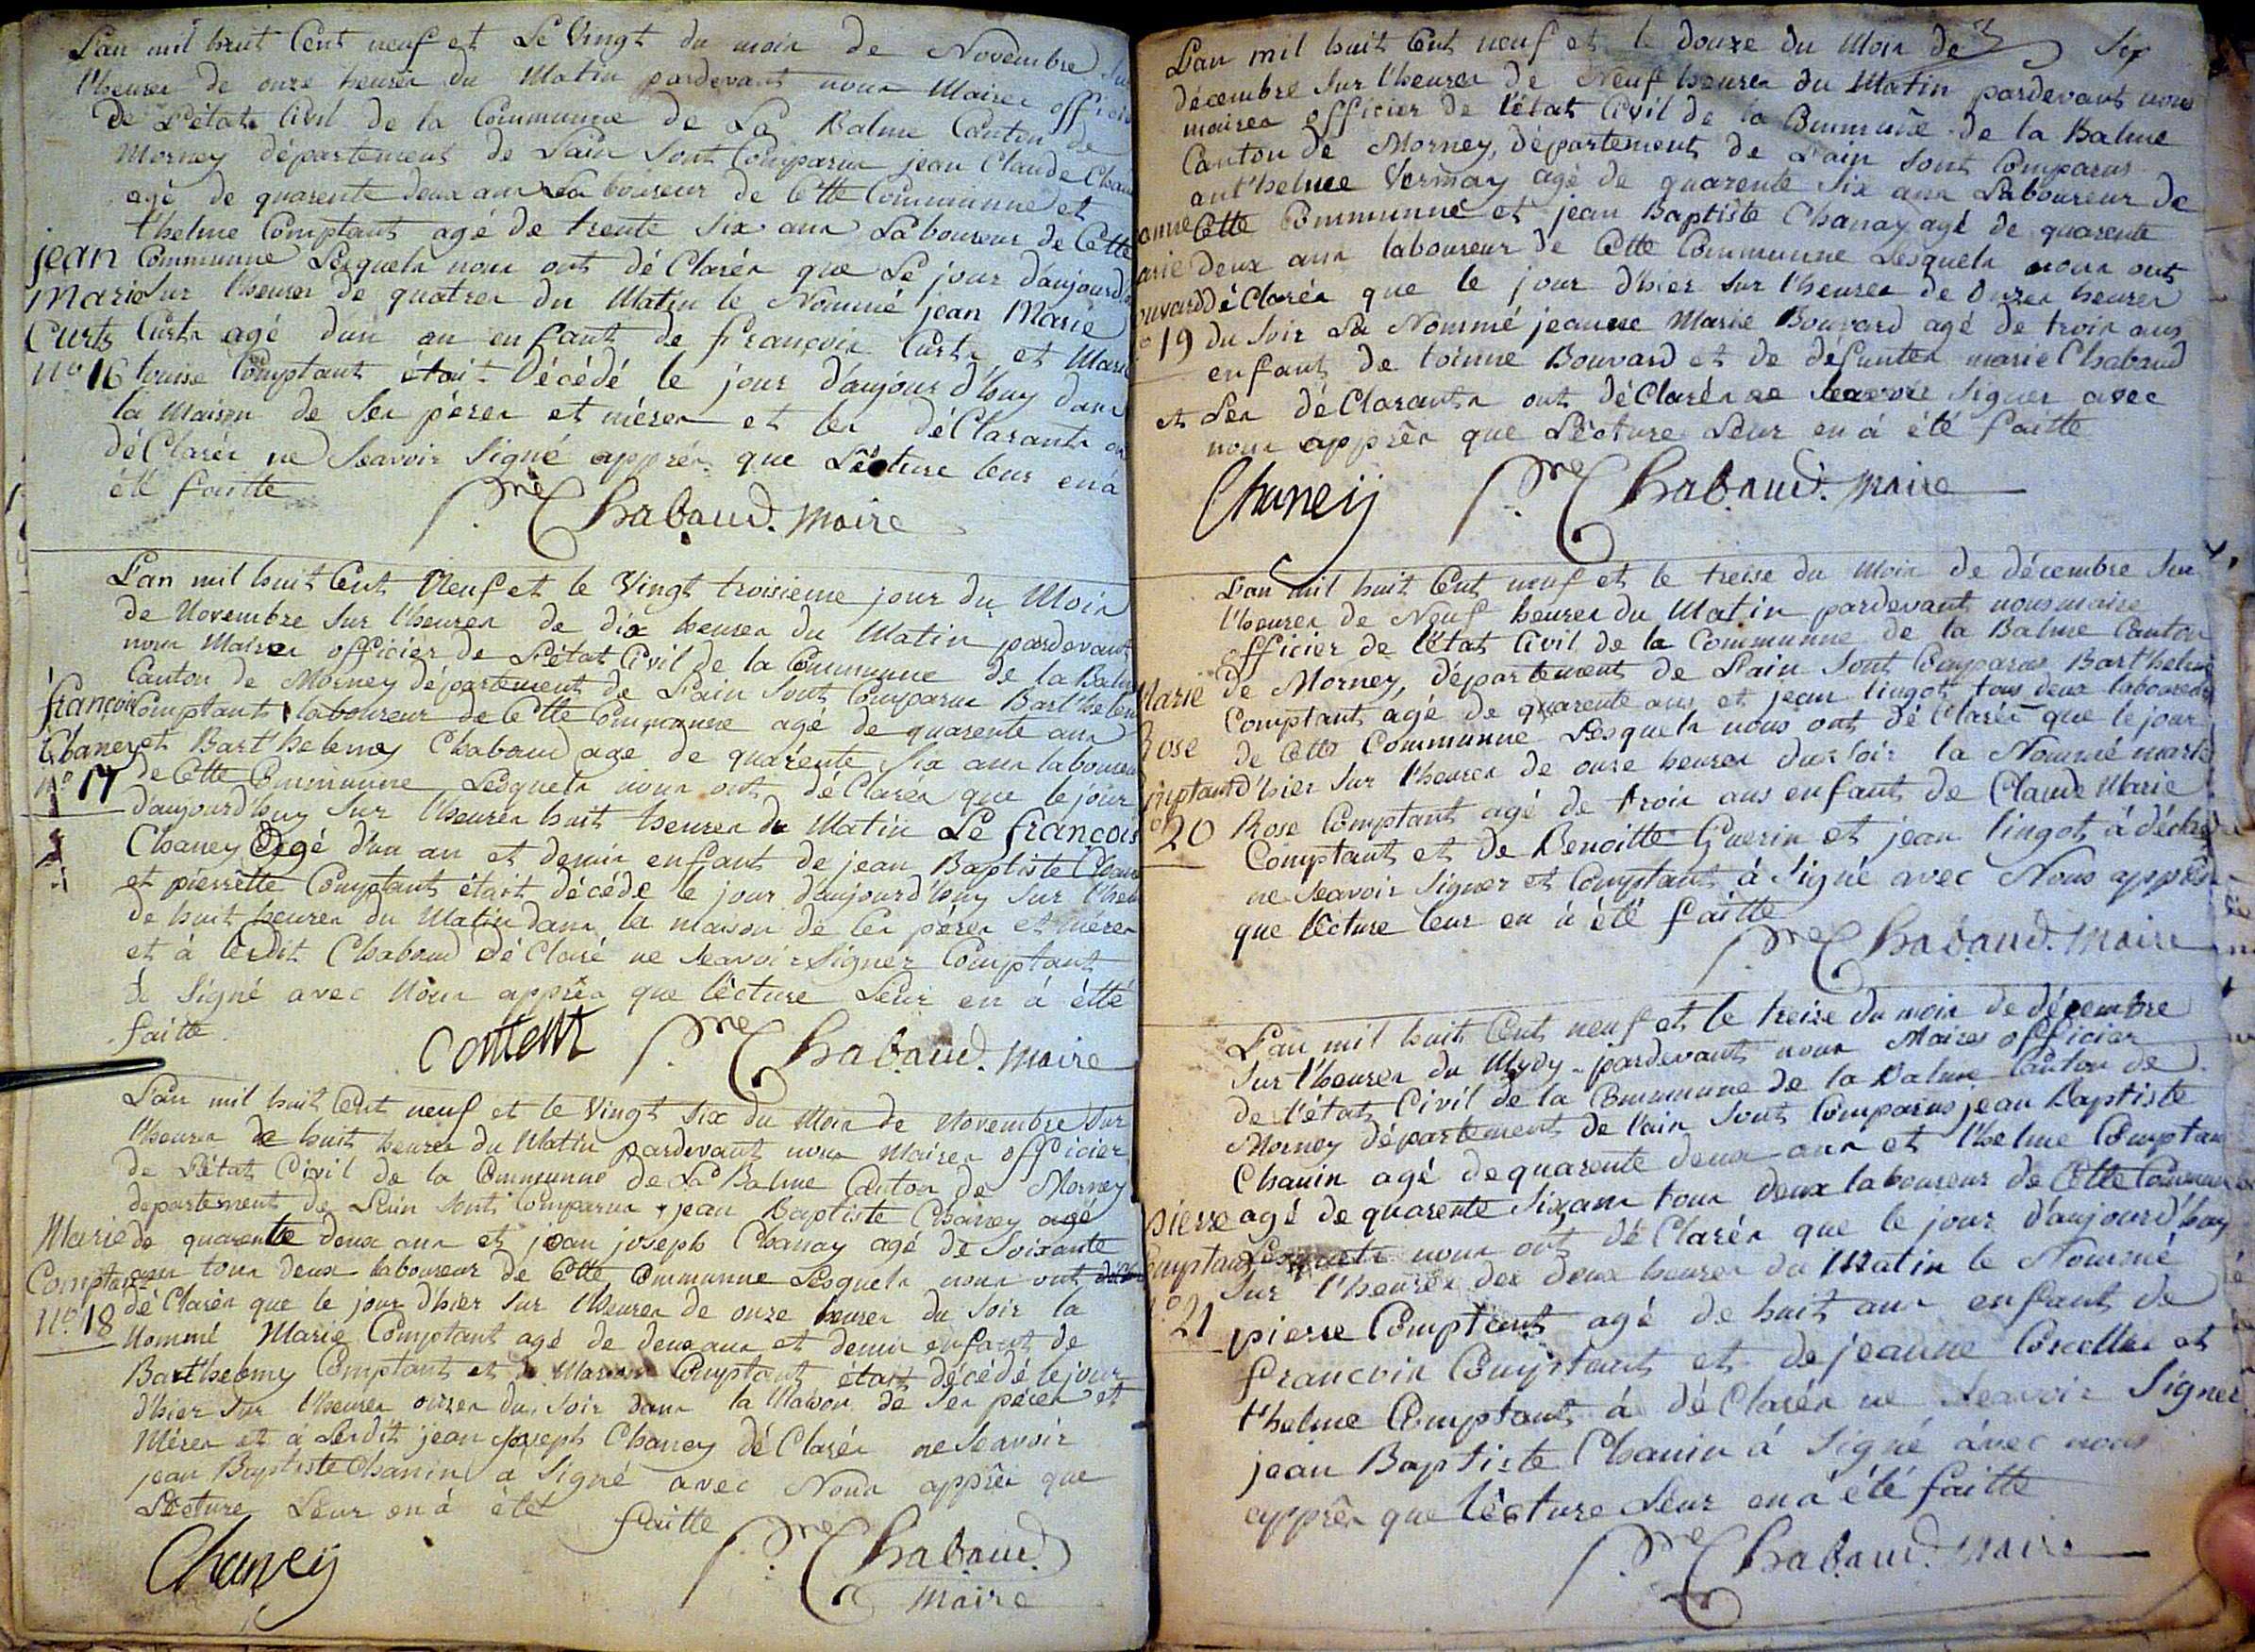 L'an mil huit Cent neuf et Le Vingt du moin de Novembre Sur
l'heurer de onze heurer du Matin pardevant nour Mairer officier
De L'état Civil de la Communne de La Balme Canton de
Morney département de L'ain Sont Comparur jean Claude
agé de quarente deux anr Laboureur de Cette Communne et
thelme Comptant agé de trente Six anr Laboureur de Cette
jean Communne Lesquelr nour ont déClarér que Le jour d'aujourd
Marie Sur l'heurer de quatrer du Matin le Nommé jean Marie
Curts Curtr agé d'un an enfant de françoir Curtr et Marie
N.o 16 Louise Comptant était Décédé le jour d'aujourd'huy danr
la Maison de Ser pérer et mérer et ler déClarantr on
déClarér ne Seavoir Signé apprér que Lécture leur en à
été faitte
P.re Chabaud. maire
L'an mil huit Cent Neuf et le Vingt troisieme jour du Moir
de Novembre Sur l'heurer de dix heurer du Matin pardevant
nour Mairer officiér de L'état Civil de la Communne de la Balme
Canton de Morney département de L'ain Sont Comparur Bart'helem
françoir Comptant laboureur de Cette Communne agé de quarente anr
Chaney et Bart'helemey Chabaud agé de quarénte Six anr laboureur
N.o 17 de Cette Communne Lesquelr nour ont déClarér que le jour
d'aujourd'huy Sur l'heurer huit heurer du Matin Le françois
Chaney Agé d'un an et demir enfant de jean Baptiste
et pierrétte Comptant était décédé le jour d'aujourd'huy Sur l'heu
de huit heurer du Matin danr la maison de Ser pérer et mérer
et à Ledit Chabaud déClaré ne Seavoir Signer Comptant
à Signé avec Nour apprér que lécture Leur en à étté
faitte
Contemt P.re Chabaud. maire
L'an mil huit Cent neuf et le Vingt Six du Moir de Novembre Sur
l'heurer de huit heurer du Matin pardevant nour Mairer officier
de L'état Civil de la Communne de La Balme Canton de Morney
departement de L'ain Sont Comparur jean Baptiste Chaney agé
Marie de quarentte deux anr et jean joseph Chanay agé de Soixante
Comptant anr tour deux laboureur de Cette Communne Lesquelr nour ont
N.o 18 déClarér que le jour d'hier Sur l'heurer de onze heurer du Soir la
Nommé Marie Comptant agé de deux anr et demir enfant de
Bart'helemy Comptant et de Comptant était décédé le jour
d'hier Sur l'heurer onzer du Soir danr la Maison de Ser pérer et
Mérer et à Lerdit jean joseph Chaney déClarér ne Seavoir
jean Baptiste Chanin à Signé avec Nour apprér que
Lécture Leur en à été faitte
Chaneÿ P.re Chabaud.
maire
L'an mil huit Cent neuf et le douze du Moir de
décembre Sur l'heurer de Neuf heurer du Matin pardevant nour
mairer officier de l'état Civil de la Communne de la Balme
Canton de Morney, département de L'ain Sont Comparus
ant'helme Vermay agé de quarente Six anr Laboureur de
Cette Communné et jean Baptiste Chanay agé de quarente
deux anr laboureur de Cette Communne Lesquelr nour ont
déClarér que le jour d'hier Sur l'heurer de onzer heurer
19 du Soir La Nommé jeanne Marie Bouvard agé de troir ans
enfant de toinne Bouvard et de défunter marie Chabaud
et Ler déClarantr ont déClarér ne Seavoir Signer avec
nour apprêr que Lécture Leur en à été faitte
Chaneÿ P.re Chabaud. maire
L'an mil huit Cent neuf et le treise du Moir de décembre Sur
l'heurer de Neuf heurer du Matin pardevant nous maire
officier de l'état Civil de la Communne de la Balme Canton
Marie de Morney, département de L'ain Sont Comparus Bart'helemé
Comptant agé de quarente ans et jean lingot tous deux laboureur
Rose de Cette Communne Lesquelr nous ont déClaréé que le jour
d'hier Sur l'heurer de onze heurer du Soir la Nommé marie
20 Rose Comptant agé de troir ans enfant de Claude Marie
Comptant et de Benoitte Guerin et jean lingot à
ne Seavoir Signer et Comptant à Signé avec Nous apprêr
que lécture leur en à été faitte
P.re Chabaud. maire
L'an mil huit Cent neuf et le treize du moir de décembre
Sur l'heurer du Mydy pardevant nour Maires officier
de l'état Civil de la Communne de la Balme Canton de
Morney département de l'ain Sont Comparus jean Baptiste
Chanin agé de quarente deux anr et thelme Comptan
pierre agé de quarente Six anr tour deux laboureur de Cette Commun
Comptant Lesquelr nour ont déClarér que le jour d'aujourd'huy
Sur l'heurer der deux heurer du Matin le Nommé
21 pierre Comptant agé de huit anr enfant de
francoir Comptant et de jeanne et
t'helme Comptant à déClarér ne Seavoir Signer
jean Baptiste Chanin à Signé avec nous
apprêr que lécture Leur en à été faitte
P.re Chabaud. maire